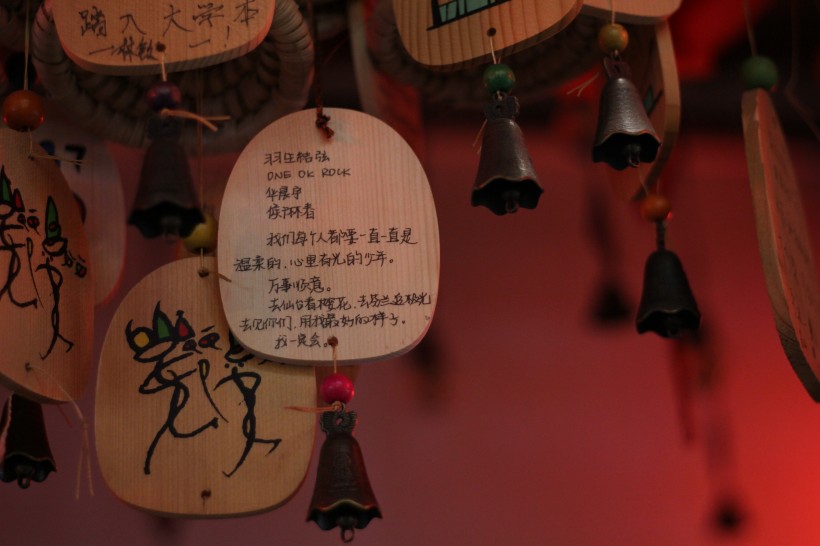 踏入大学本
一一！
羽生皓弦
ONE OK ROCK
华晨宇
侯琳着
我们每个人都要一直一直是
温柔的、心里有光的少年。
万事顺意。
去仙台看樱花、去芬兰追极光
去见你们、用我最好的样子。
我一定会。